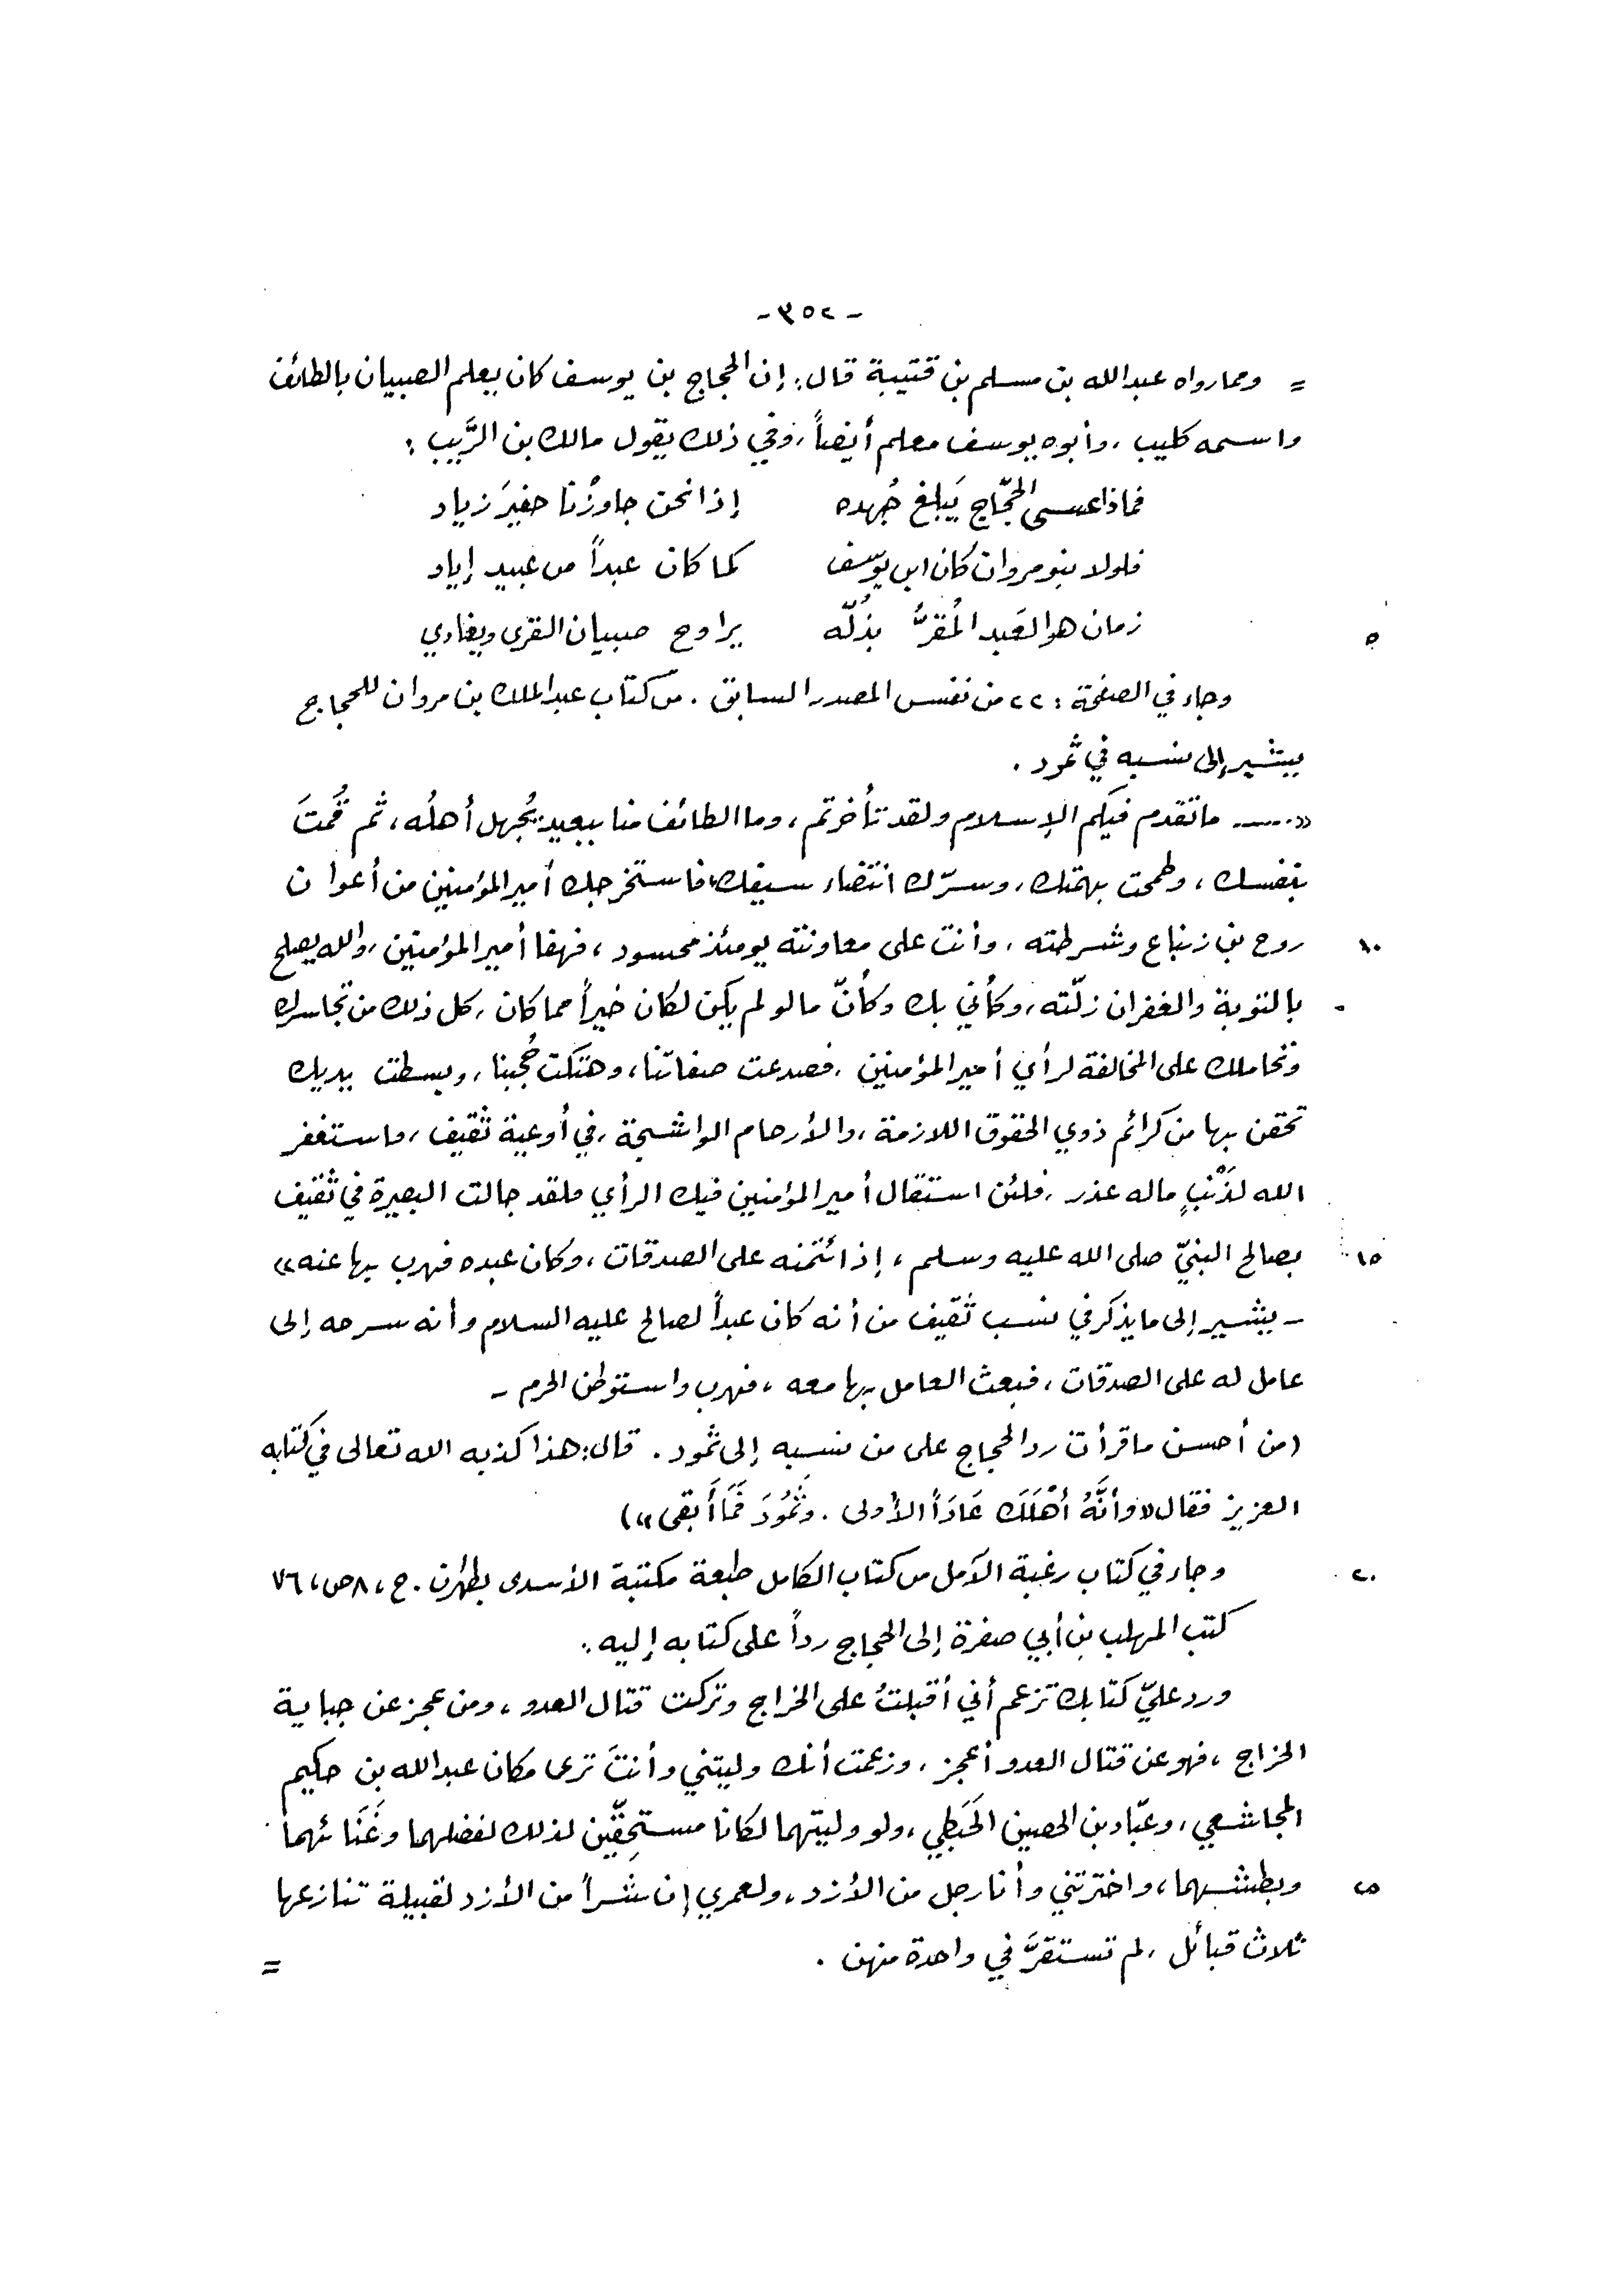 - ٣٥٢ -
= ومما رواه عبدالله بن مسلم بن قتيبة قال: إن الحجاج بن يوسف كان يعلم الصبيان بالطائف
واسمه كليب، وأبوه يوسف معلم أيضاً، وفي ذلك يقول مالك بن الرَّيب:
فماذا عسى الحجّاج يَبلغ جُهده إذا نحن جاوزْنا حفيرَ زياد
فلولا بنو مروان كان ابن يوسف كما كان عبداً من عبيد إياد
٥ زمان هو العَبد المُقرُّ بذُلّه يراوح صبيان القرى ويغادي
وجاء في الصفحة: ٢٢ من نفس المصدر السابق. من كتاب عبدالملك بن مروان للحجاج
يشير إلى نسبه في ثمود.
«..... ما تقدم فيكم الإسلام ولقد تأخرتم، وما الطائف منا ببعيد يُجهل أهلُه، ثم قُمتَ
بنفسك، وطمحت بهمّتك، وسرّك انتضاء سيفك، فاستخرجك أمير المؤمنين من أعوان
١٠ روح بن زنباع وشرطته، وأنت على معاونته يومئذ محسود، فهفا أمير المؤمنين، والله يصلح
بالتوبة والغفران زلّته، وكأني بك وكأنّ ما لو لم يكن لكان خيراً مما كان، كل ذلك من تجاسرك
وتحاملك على المخالفة لرأي أمير المؤمنين، فصدعت صفاتنا، وهتكت حُجبنا، وبسطت يديك
تحقن بها من كرائم ذوي الحقوق اللازمة، والأرحام الواشجة، في أوعية ثقيف، فاستغفر
الله لذَنْبٍ ماله عذر، فلئن استقال أمير المؤمنين فيك الرأي فلقد جالت البصيرة في ثقيف
١٥ بصالح النبيّ صلى الله عليه وسلم، إذ ائتمنه على الصدقات، وكان عبده فهرب بها عنه»
- يشير إلى ما يذكر في نسب ثقيف من أنه كان عبداً لصالح عليه السلام وأنه سرحه إلى
عامل له على الصدقات، فبعث العامل بها معه، فهرب واستوطن الحرم -
(من أحسن ما قرأت رد الحجاج على من نسبه إلى ثمود. قال: هذا كذبه الله تعالى في كتابه
العزيز فقال «وأنَّهُ أهْلَكَ عَادَاً الأولى. وثَمُودَ فَمَا أَبقى»)
٢٠ وجاء في كتاب رغبة الآمل من كتاب الكامل طبعة مكتبة الأسدى بطهرن. ج، ٨ ص، ٧٦
كتب المهلب بن أبي صفرة إلى الحجاج رداً على كتابه إليه:
ورد عليّ كتابك تزعم أني أقبلتُ على الخراج وتركت قتال العدو، ومن عجز عن جباية
الخراج، فهو عن قتال العدو أعجز، وزعمت أنك وليتني وأنتَ ترى مكان عبدالله بن حكيم
المجاشعي، وعبّاد بن الحصين الحَبَطي، ولو وليتهما لكانا مستحِقّين لذلك لفضلهما وغَنَائهما
٢٥ وبطشهما، واخترتني وأنا رجل من الأزد، ولعمري إن شراً من الأزد لقبيلة تنازعها
ثلاث قبائل، لم تستقرَّ في واحدة منهن. =